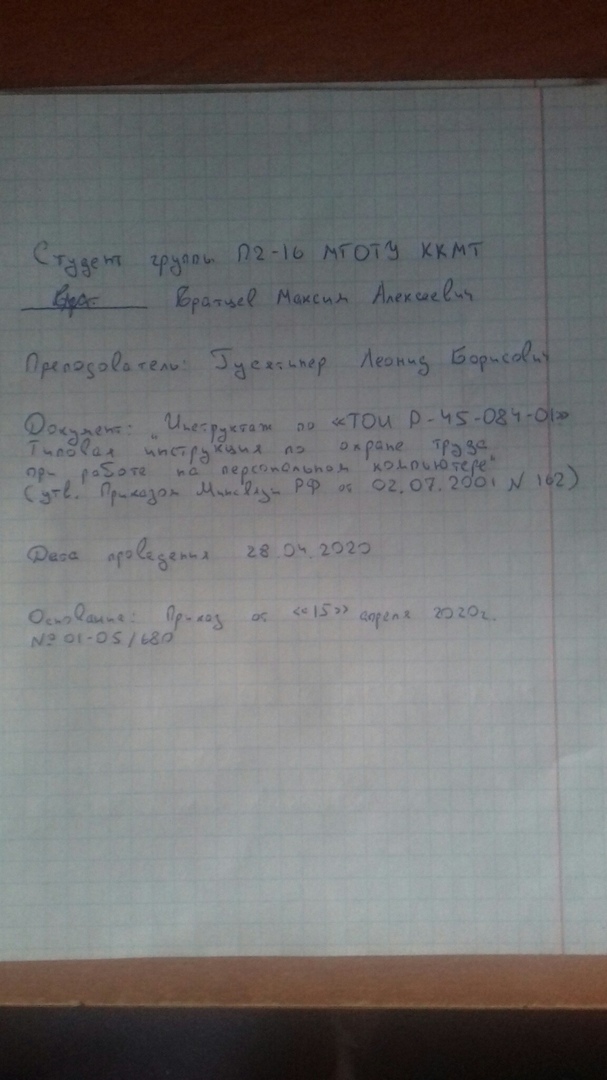 Студент группы П2-16 МГОТУ ККМТ
Вратцев Максим Алексеевич
Преподаватель: Гусятинер Леонид Борисович
Документ: "Инструктаж по «ТОИ Р-45-084-01»
Типовая инструкция по охране труда
при работе на персональном компьютере"
(утв. Приказом Минсвязи РФ от 02.07.2001 N 162)
Дата проведения 28.04.2020
Основание: Приказ от «15» апреля 2020г.
№ 01-05/680